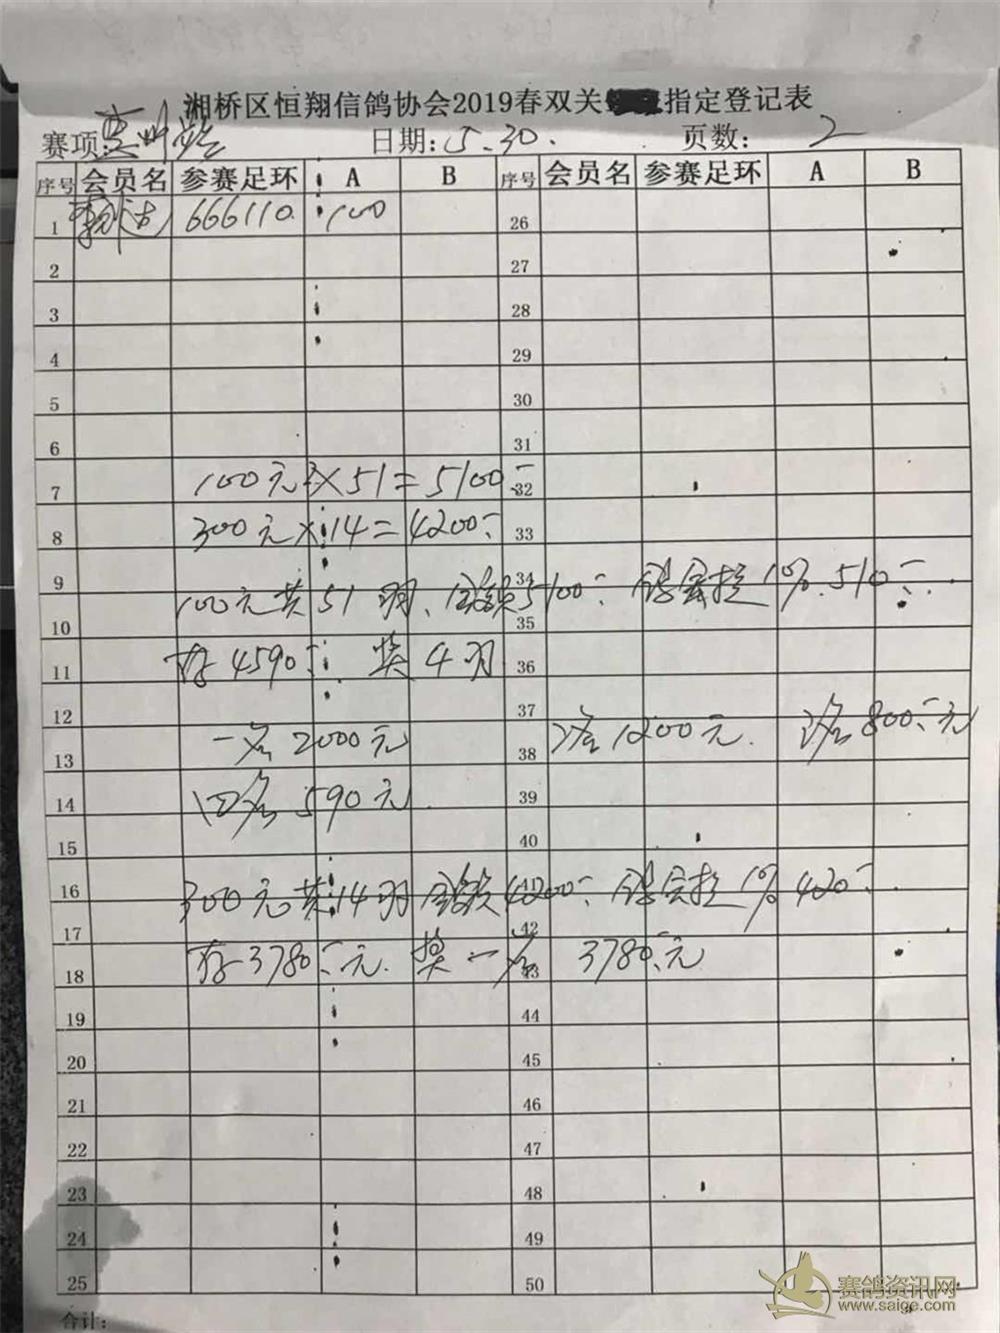 湘桥区恒翔信鸽协会2019春双关 指定登记表
赛项: 日期: 5.30. 页数: 2
序号 会员名 参赛足环 A B 序号 会员名 参赛足环 A B
1 666110 100 26
2 27
3 28
4 29
5 30
6 31
7 100元×51=5100 32
8 300元×14=4200 33
9 34
100元共51羽、金额5100 10% 510
10 35
11 存4590 奖4羽 36
12 37
13 一名2000元 38 1200元. 800元
14 四名590元 39
15 40
16
300元共14羽 金额4200 10% 420
17 42
18 存3780元. 奖一名 43 3780元
19 44
20 45
21 46
22 47
23 48
24 49
25 50
合计:
赛鸽资讯网
www.saige.com